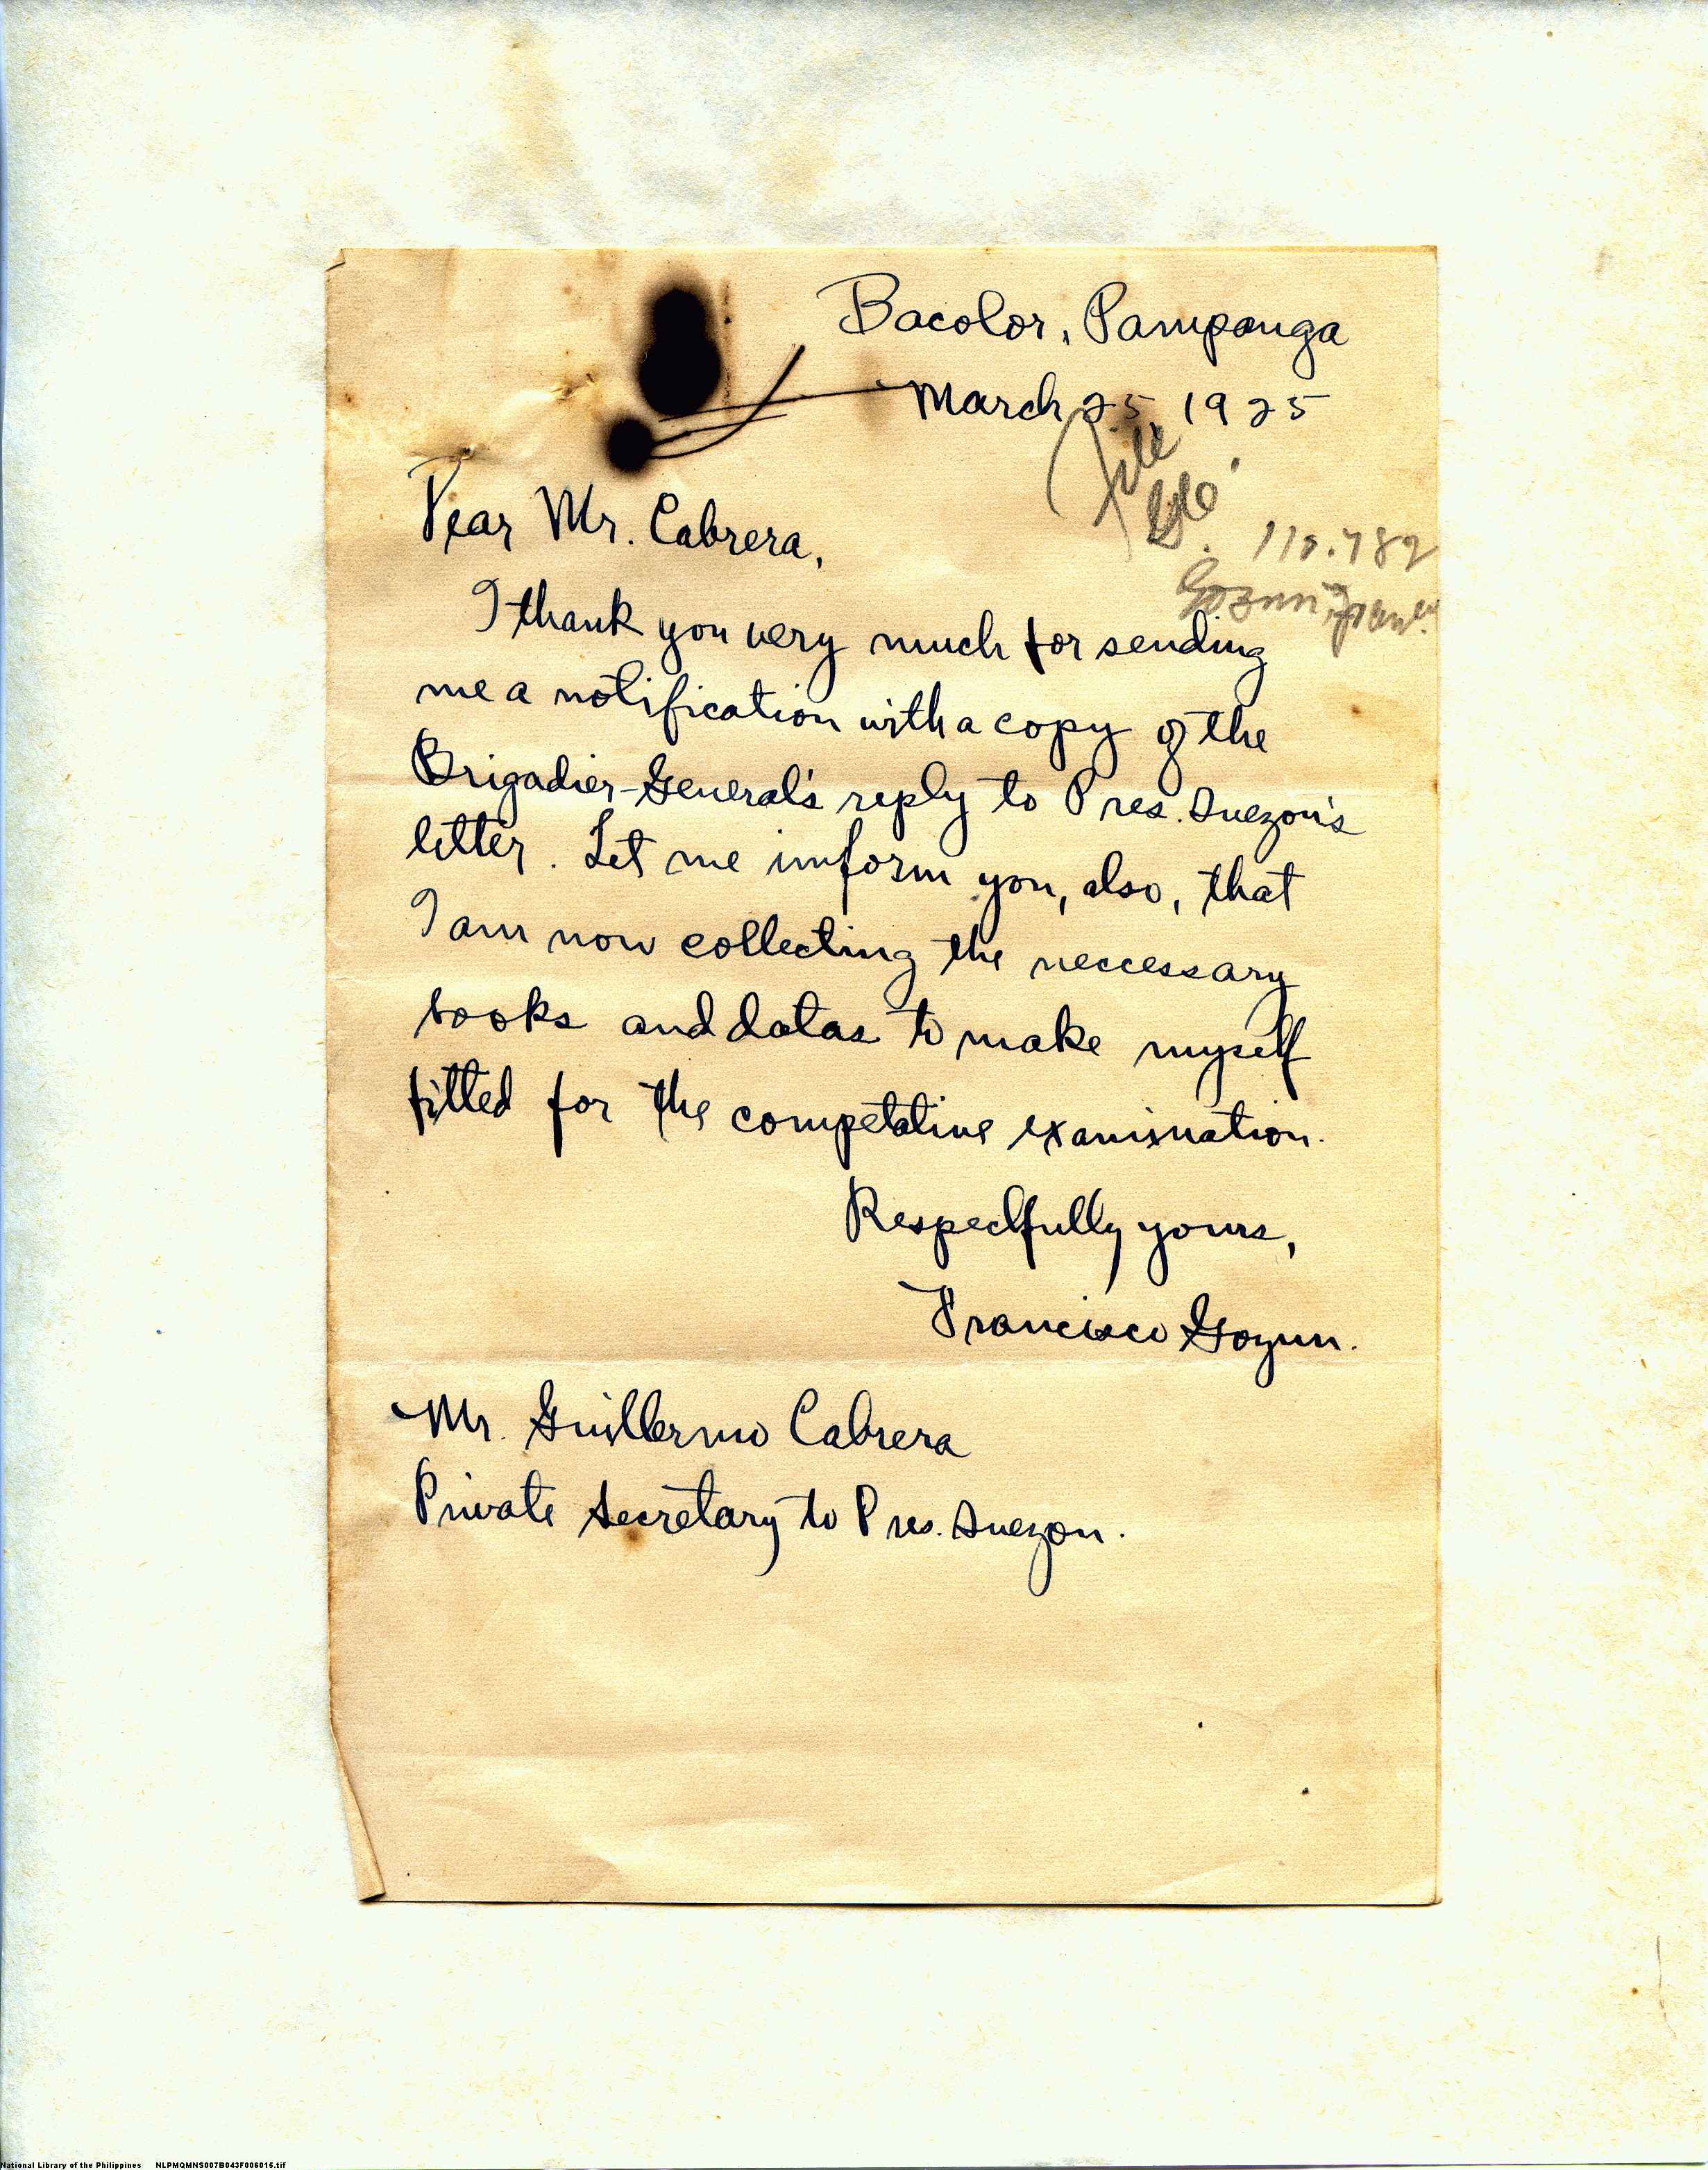 Bacolor, Pampanga
March 25 1925
File
110.782
Gozun
Dear Mr. Cabrera,
I thank you very much for sending
me a notification with a copy of the
Brigadier-General's reply to Pres. Quezon's
letter. Let me imform you, also, that
I am now collecting the neccessary
books and datas to make myself
fitted for the competative examination.
Respectfully yours,
Francisco Gozun.
Mr. Guillermo Cabrera
Private Secretary to Pres. Quezon.
National Library of the Philippines NLPMQMNS007B043F006015.tif